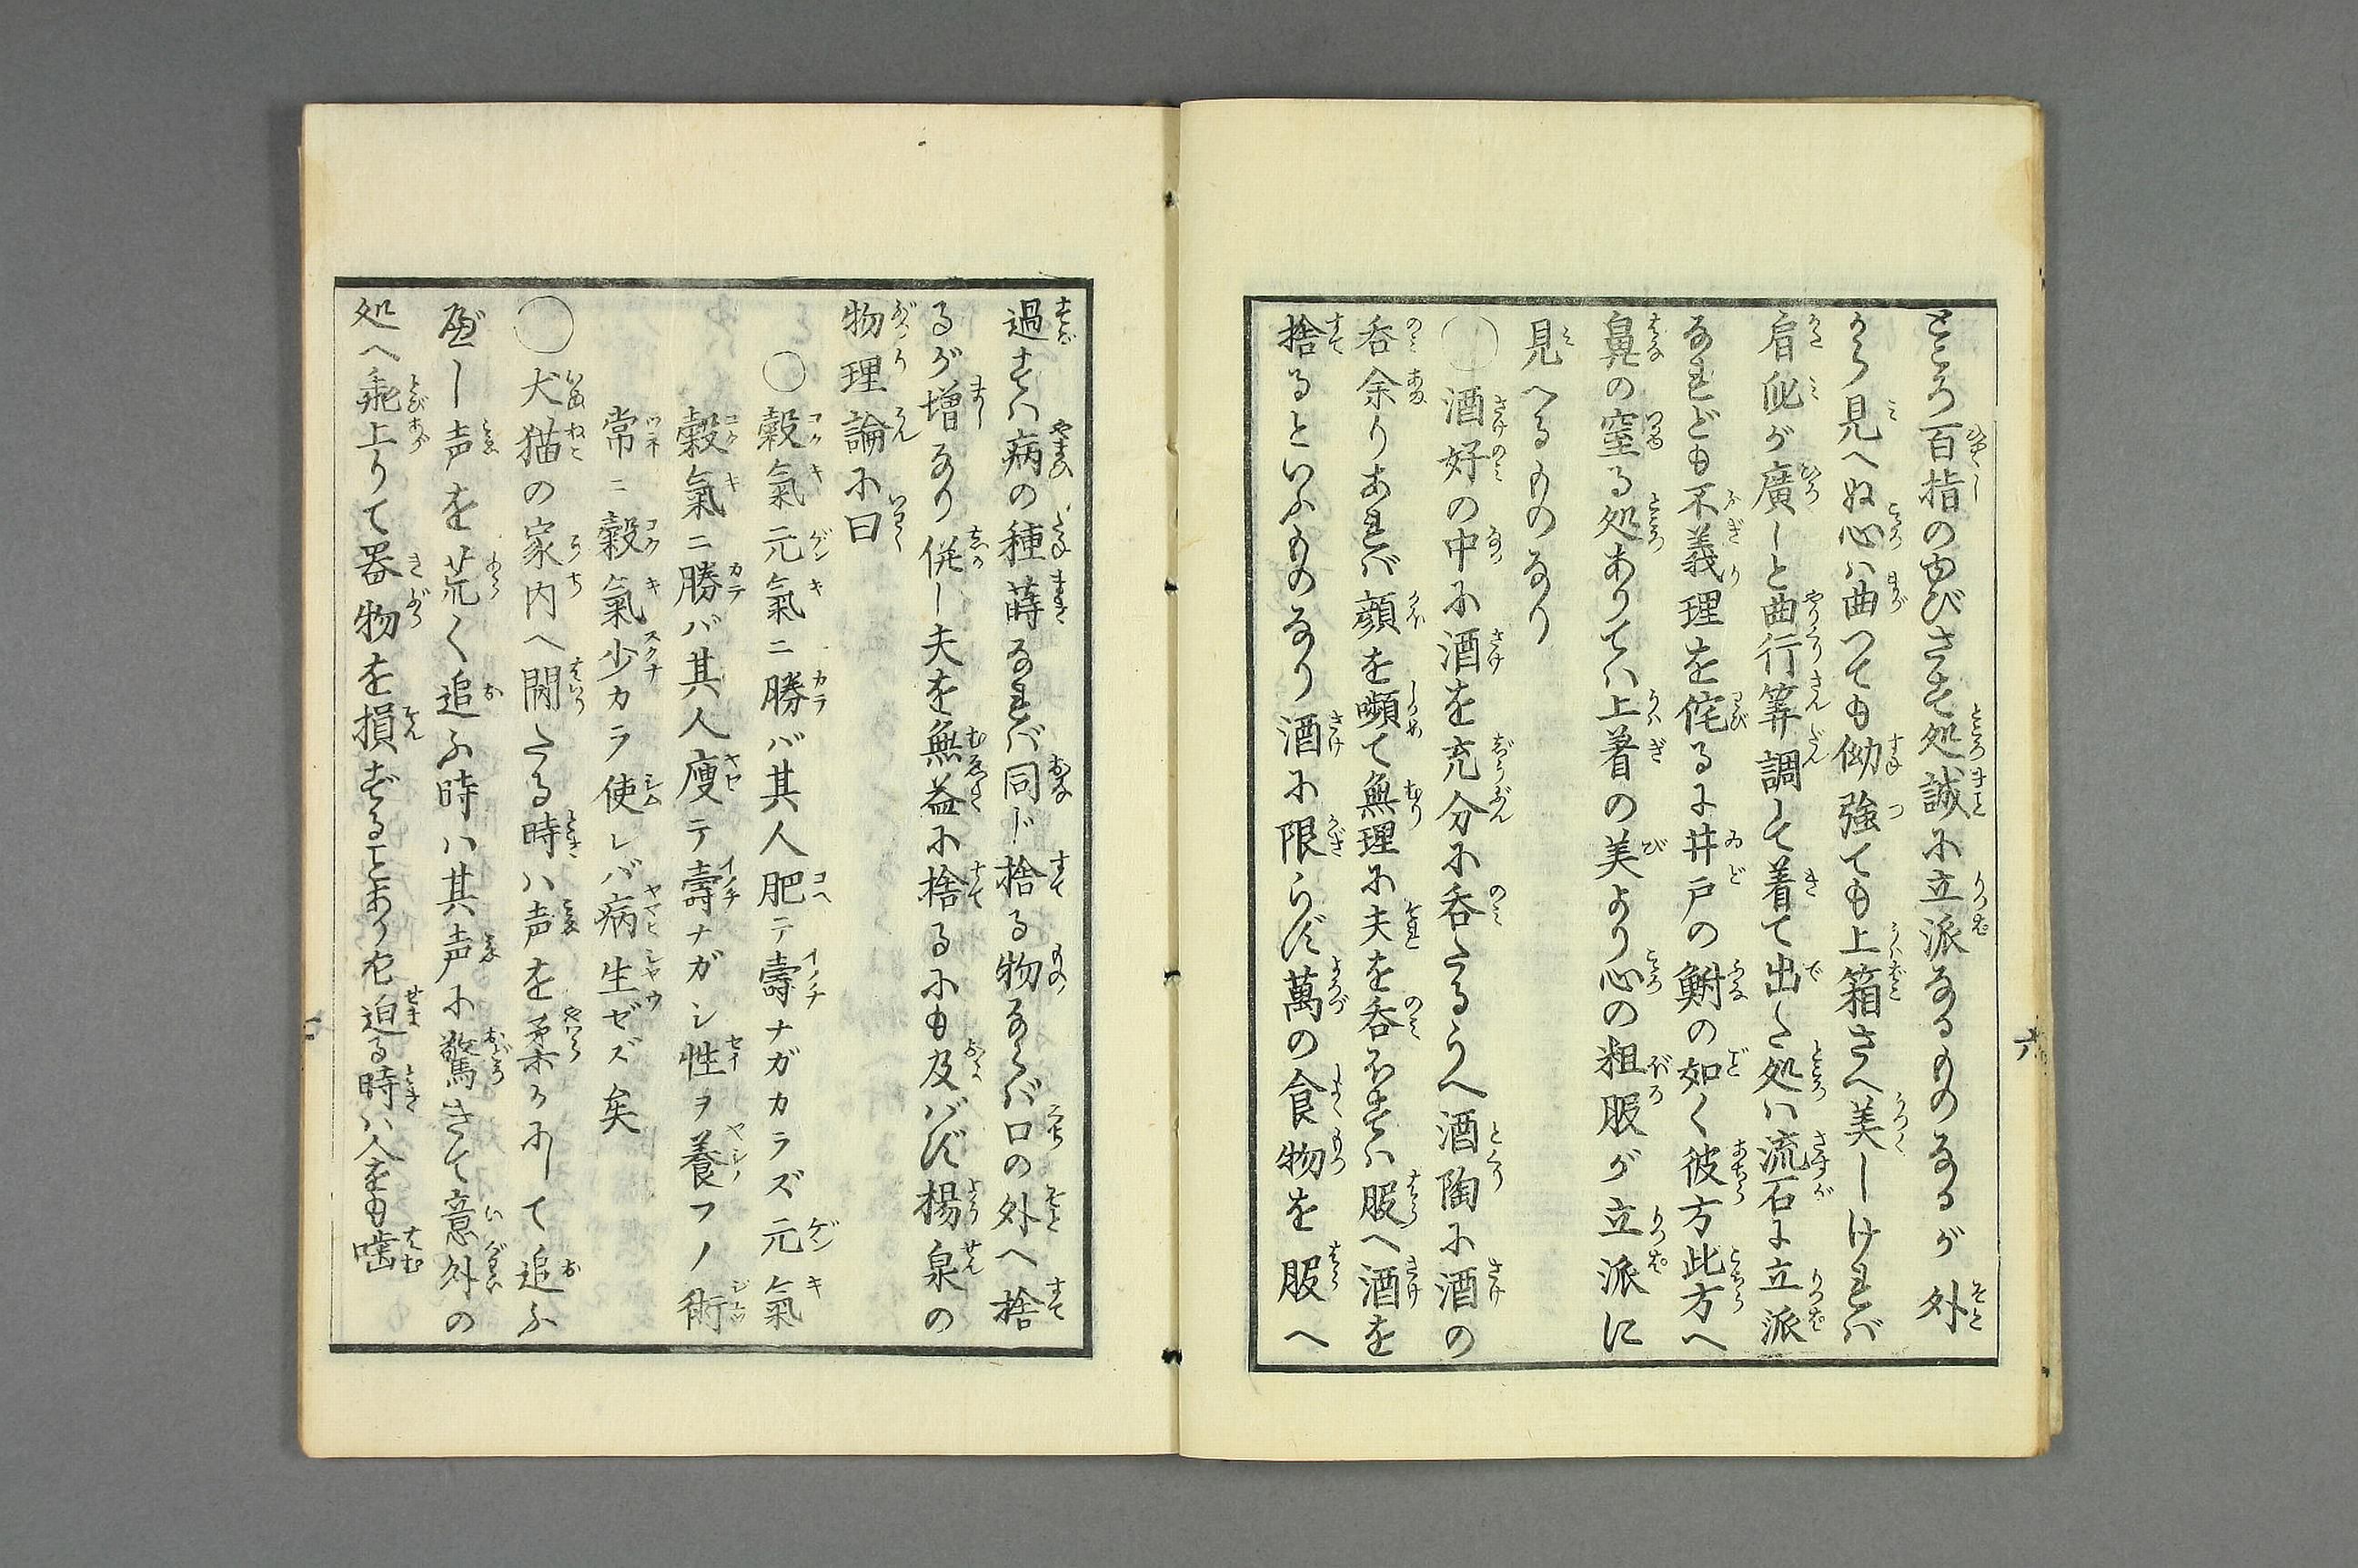 ところ百指のゆびさして処誠に立派なるものなるが外
から見へぬ心ハ曲つても拗強ても上箱さへ美しければ
肩身が廣しと曲行筭調して着て出た処ハ流石に立派
なれども不義理を侘るに井戸の鮒の如く彼方此方へ
鼻の窒る処ありてハ上着の美より心の粗服が立派に
見へるものなり
○酒好の中に酒を充分に呑たるうへ酒陶に酒の
呑余りあれバ顔を顰て無理に夫を呑ほすハ服へ酒を
捨るといふものなり酒に限らず萬の食物を服へ
過すハ病の種蒔なれバ同ド捨る物ならバ口の外へ捨
るが増なり併し夫を無益に捨るにも及バず楊泉の
物理論に曰
○穀氣元氣ニ勝バ其人肥テ壽ナガカラズ元氣
穀氣ニ勝バ其人痩テ壽ナガシ性ヲ養フノ術
常ニ穀氣少カラ使レバ病生ゼズ矣
○犬猫の家内へ閙たる時ハ声を柔かにして追ふ
べし声を荒く追ふ時ハ其声に驚きて意外の
処へ飛上りて器物を損ずることあり迫る時ハ人をも噛
六